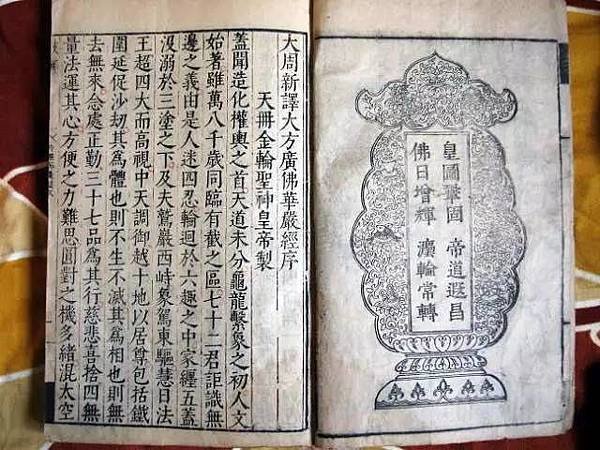 皇圖鞏固 帝道遐昌
佛日增輝 灋輪常轉
大周新譯大方廣佛華嚴經序
天冊金輪聖神皇帝製
蓋聞造化權輿之首天道未分龜龍繫象之初人文
始著雖萬八千歲同臨有截之區七十二君詎識無
邊之義由是人迷四忍輪迴於六趣之中家纏五蓋
沒溺於三塗之下及夫鷲巖西峙象駕東驅慧日法
王超四大而高視中天調御越十地以居尊包括鐵
圍延促沙劫其爲體也則不生不滅其爲相也則無
去無來念處正勤三十七品爲其行慈悲喜捨四無
量法運其心方便之力難思圓對之機多緒混太空